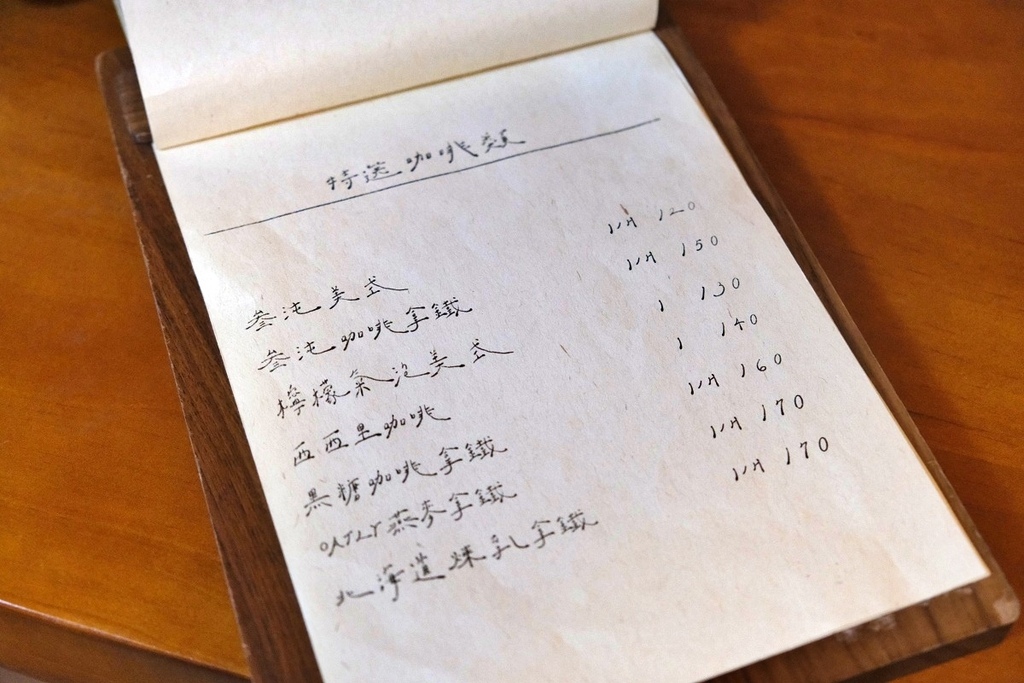 特選咖啡類
叁沌美式 I/H 120
叁沌咖啡拿鐵 I/H 150
檸檬氣泡美式 I 130
西西里咖啡 I 140
黑糖咖啡拿鐵 I/H 160
OATLY燕麥拿鐵 I/H 170
北海道煉乳拿鐵 I/H 170